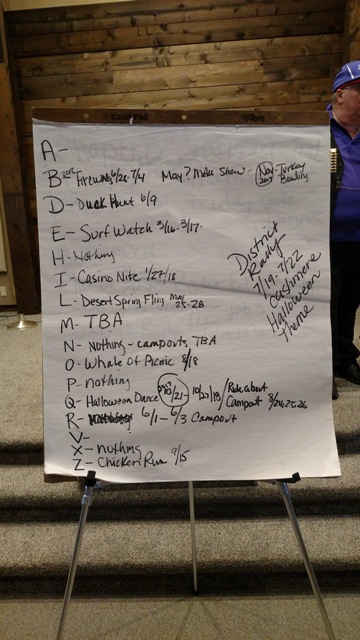 A-
B- Fireworks 6/28-7/4 May? Make Show- Nov 2017 - Turkey Bowling
D- Duck Hunt 6/9
E- Surf Watch 3/16-3/17.
H- Nothing
I- Casino Nite 1/27/18
L- Desert Spring Fling May 25-28
M- TBA
N- Nothing - campouts TBA
O- Whale Of Picnic 8/18
P- nothing
Q- Halloween Dance 10/21- 10/27/18/ Ride about Campout 8/24,25,26
R- 6/1-6/3 Campout
V-
X- nothing
Z- Chicken Run 9/15
District
Rally
7/19-7/22
Cashmere
Halloween
Theme